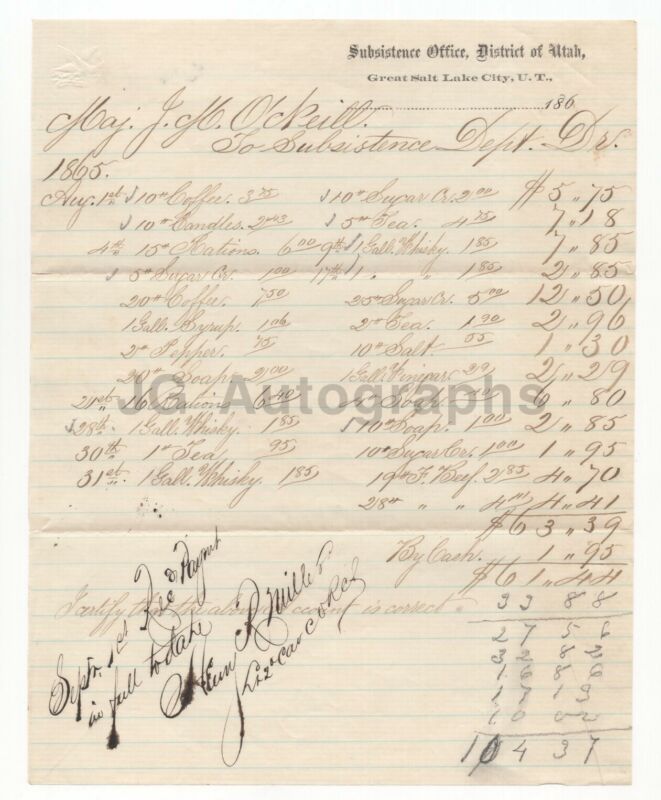 Subsistence Office, District of Utah,
Great Salt Lake City, U.T.,
186
Maj. J. M. O'Neill.
To Subsistence Dept. Dr.
1865.
Aug. 1st 10# Coffee. 3 75 10# Sugar Cr. 2 00 $ 5 " 75
10# Candles. 2 43 5# Tea. 4 75 7 " 18
4th 15# Rations. 6 00 9th 1 Gall. Whisky. 1 85 7 " 85
5# Sugar Cr. 1 00 17th 1 " " 1 85 2 " 85
20# Coffee. 7 50 25# Sugar Cr. 5 00 12 " 50
1 Gall. Syrup. 1 06 2# Tea. 1 90 2 " 96
2# Pepper. 75 10# Salt. 55 1 " 30
20# Soap. 2 00 1 Gall. Vinegar. 29 2 " 29
21st 16 Rations 6 40 6 " 80
28th. 1 Gall. Whisky. 1 85 10# Soap. 1 00 2 " 85
30th 1# Tea 95 10# Sugar Cr. 1 00 1 " 95
31st. 1 Gall. Whisky. 1 85 19# F. Beef. 2 85 4 " 70
28# " " 4 41 4 " 41
$ 63 " 39
By Cash. 1 " 95
$ 61 " 44
I certify that the above account is correct.
Septr. 1st Rec'd Paymt
in full to date
Miller
2d Cav C
33 88
104 37
JG Autographs